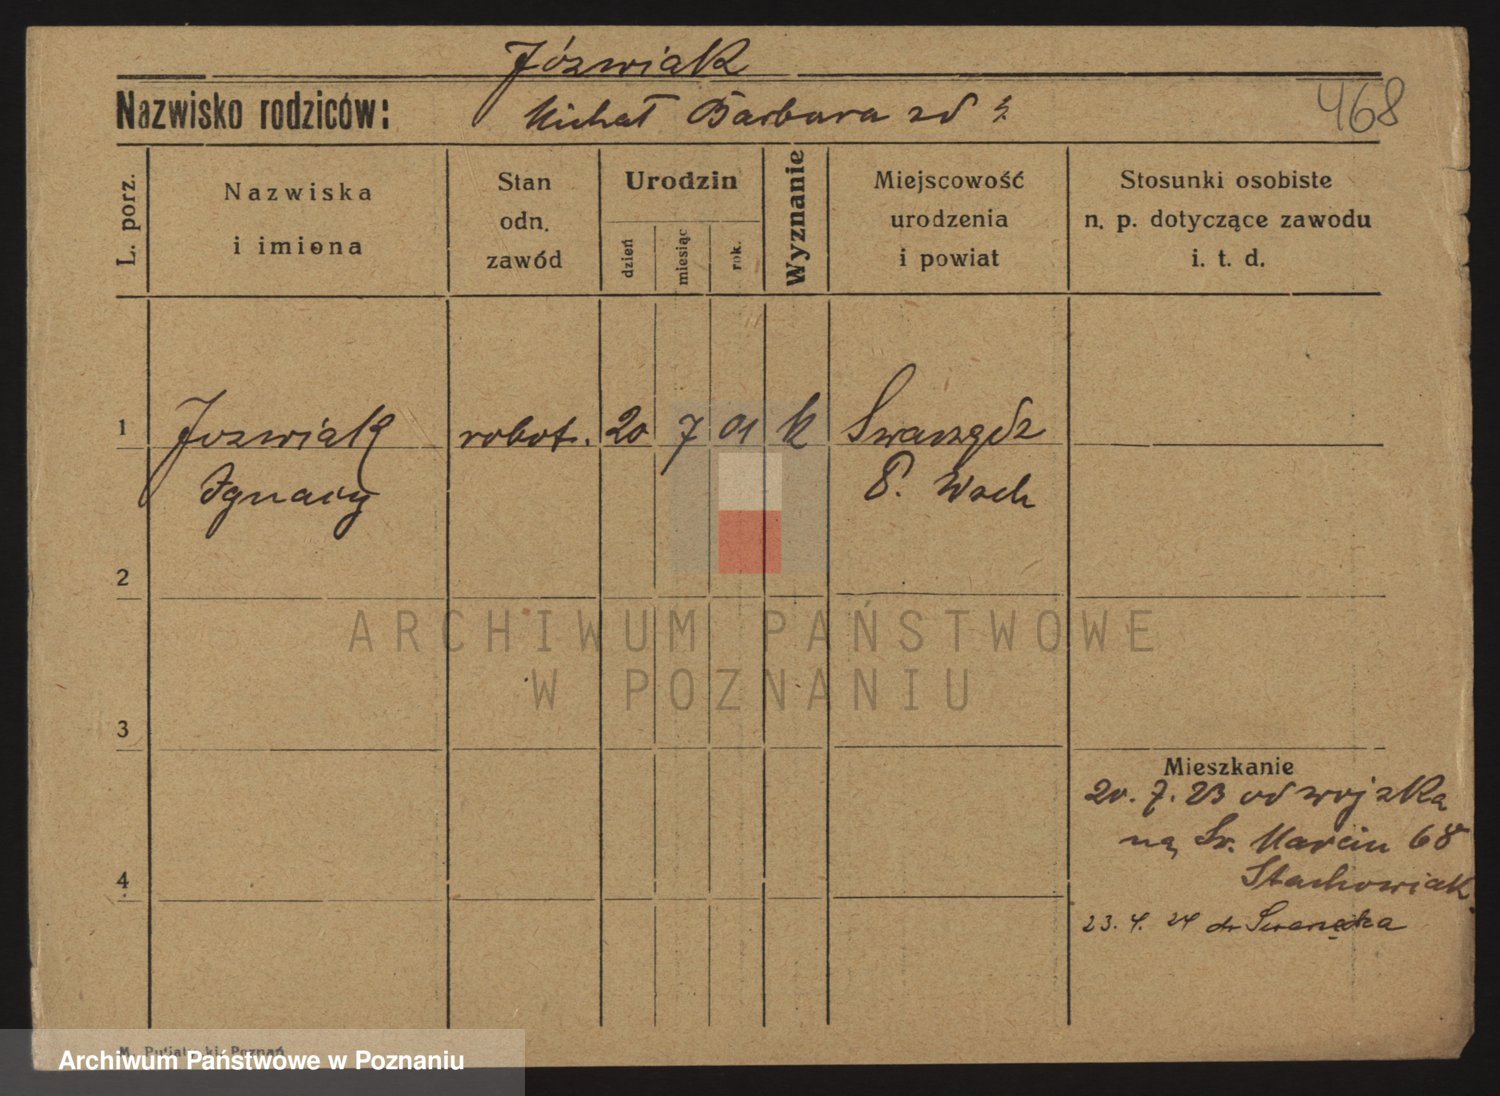 Józwiak
468
Nazwisko rodziców: Michał Barbara zd ?
L. porz.
Nazwiska
i imiona
Stan
odn.
zawód
Urodzin
dzień
miesiąc
rok.
Wyznanie
Miejscowość
urodzenia
i powiat
Stosunki osobiste
n. p. dotyczące zawodu
i. t. d.
1 Jozwiak robot. 20 7 01 k Swarzędz
Ignacy P. Wsch
2
ARCHIWUM PAŃSTWOWE
W POZNANIU
3
Mieszkanie
20. 7. 23 od wojska
na Św. Marcin 68
Stachowiak.
4
23. 4. 24 do Swarzędza
M. Putiatycki, Poznań
Archiwum Państwowe w Poznaniu